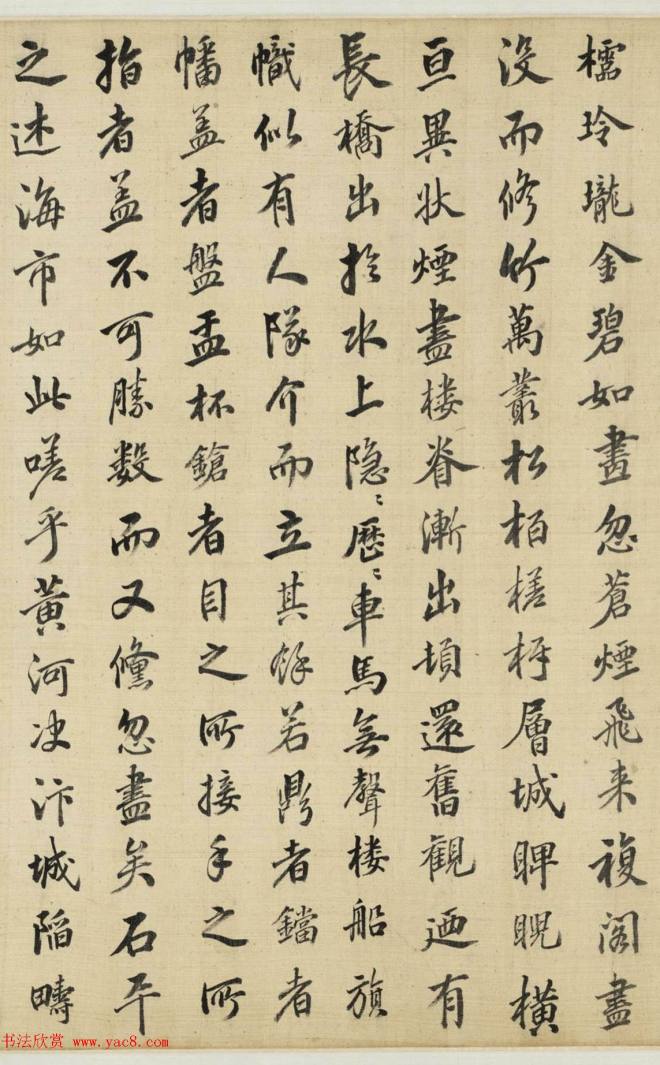 櫺玲瓏金碧如畫忽蒼煙飛来複閣盡
没而修竹萬叢松柏槎枒層城睥睨橫
亘異状煙盡楼脊漸出頃還舊觀迺有
長橋出於水上隐〻歷〻車馬無聲楼船旗
幟似有人隊介而立其餘若鼎者鐺者
幡盖者盤盂杯鎗者目之所接手之所
指者盖不可勝数而又儵忽盡矣石平
之述海市如此嗟乎黄河决汴城陷疇
书法欣赏 www.yac8.com